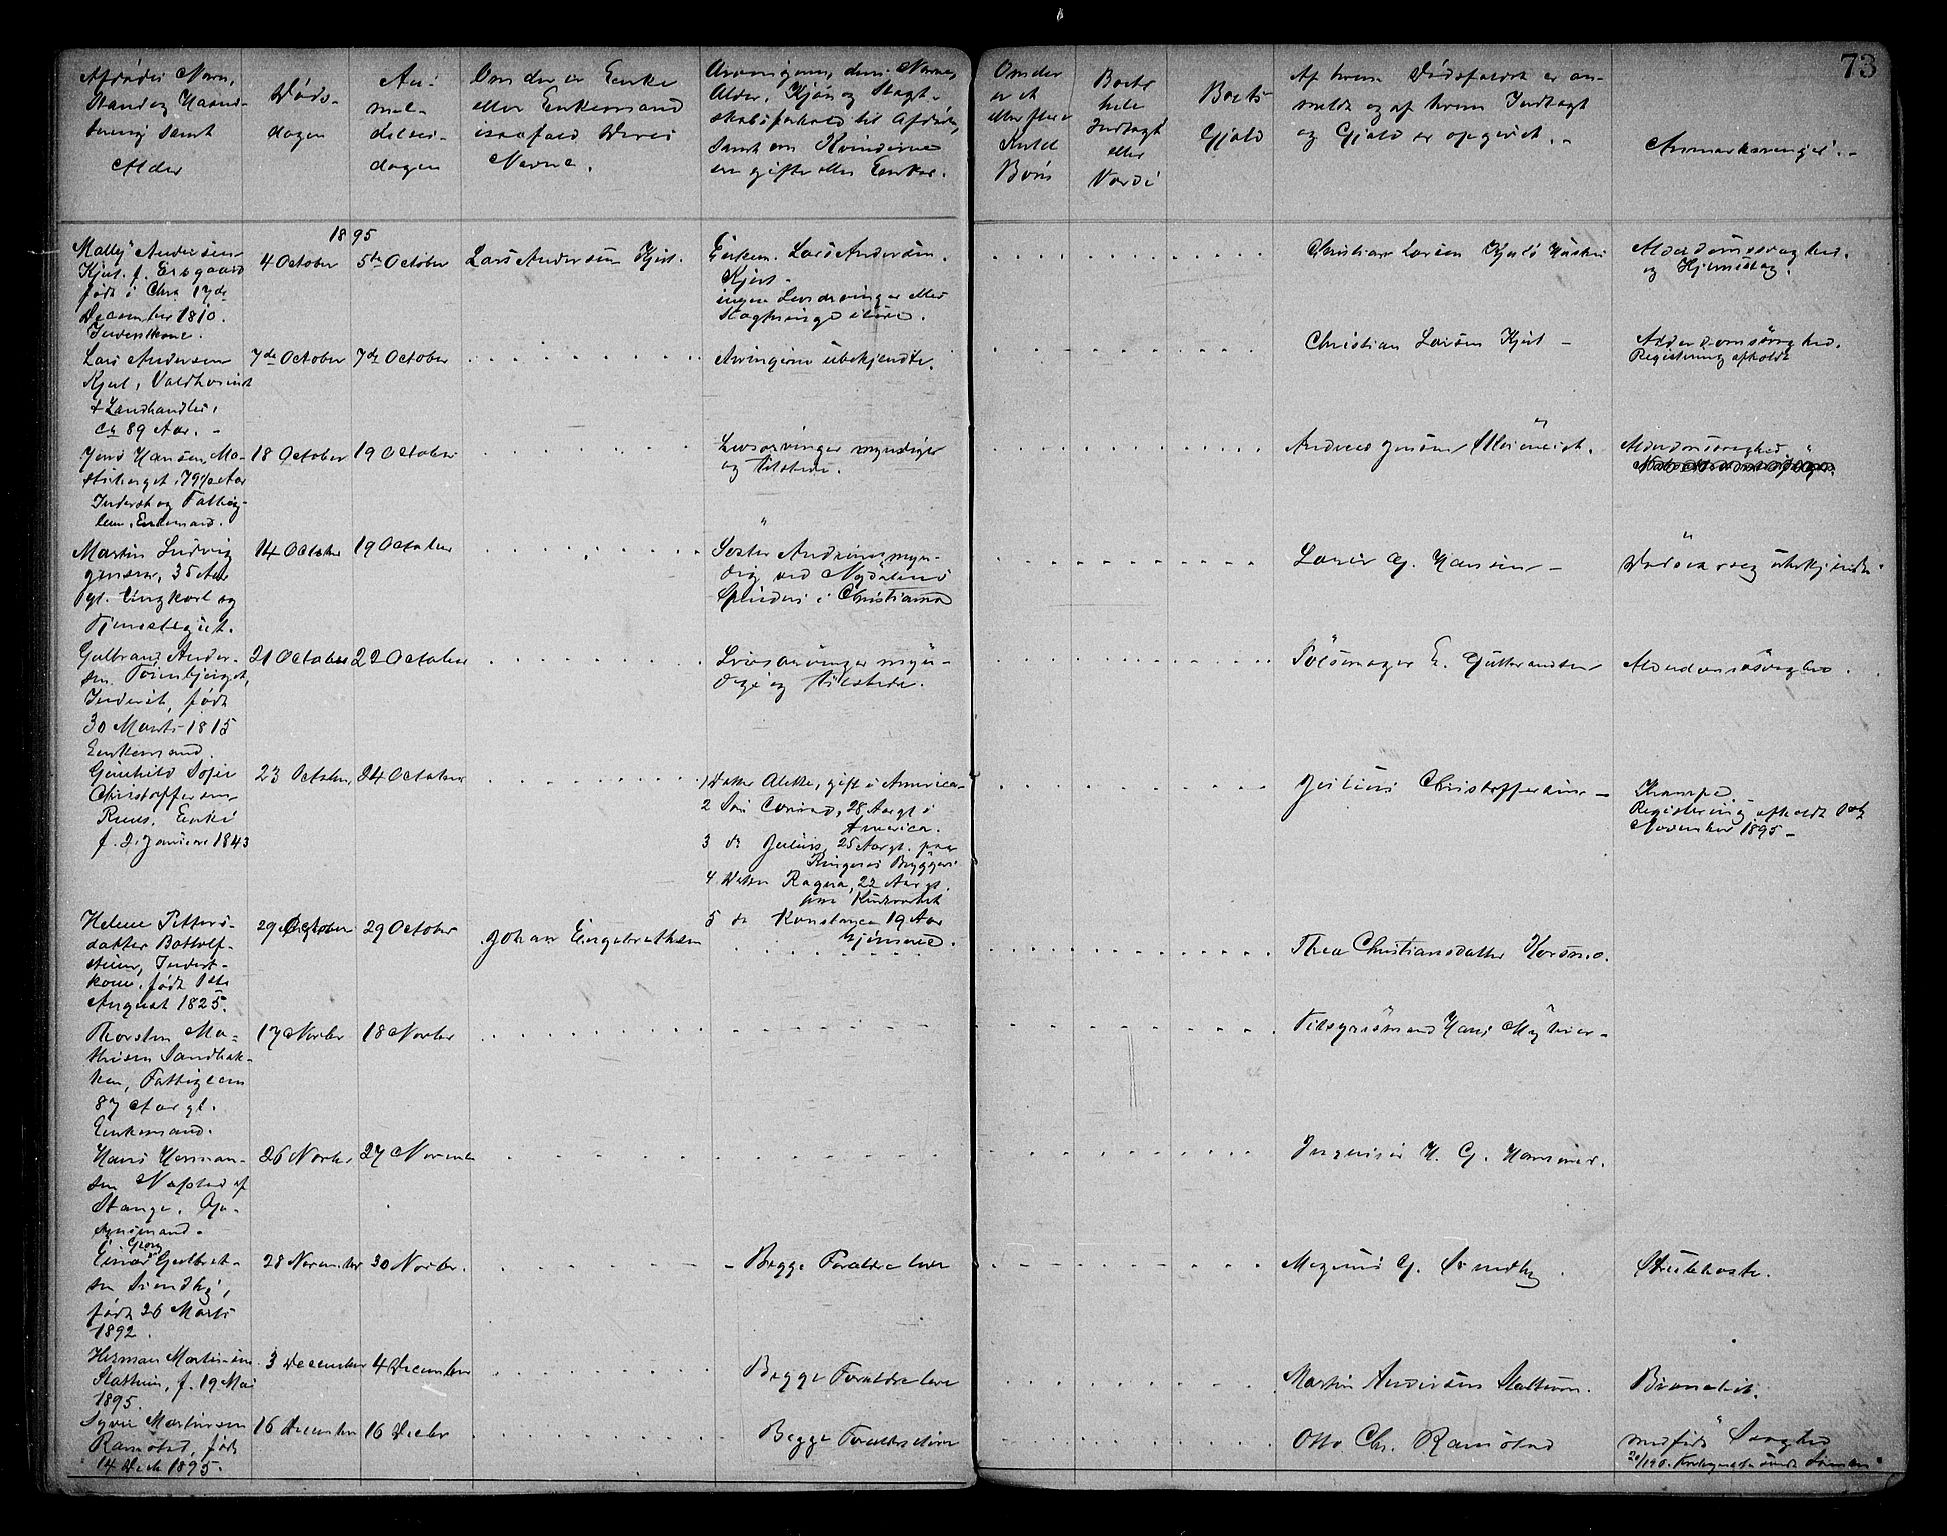 73
Afdødes Navn,
Stand og Haand-
tering samt
Alder
Døds-
dagen
An-
mel-
delses-
dagen
Om der er Enke
eller Enkemand
isaafald Deres
Navne.
Arvingerne, deres Navne,
Alder, Kjøn og Slægt-
skabsforhold til Afdøde,
samt om Kvinderne
ere gifte eller Enker.
Om der
er et
eller flere
Kuld
Børn
Boets
hele
Indtægt
eller
Værdi
Boets
Gjæld
Af hvem Dødsfaldet er an-
meldt og af hvem Indtægt
og Gjæld er opgivet.-
Anmærkninger.-
1895
Andersen
født i Chra 17de
December 1810.
Inderstkone.
4 October
5te October
Lars Andersen Kjus.
Enkem. Lars Andersen
Kjus-
ingen Livsarvinger eller
Christian Larsen
Alderdomssvaghed
og
Lars Andersen
Kjus,
& Landhandler,
ca 89 Aar.-
7de October
7de October
Arvingerne ubekjendte.
Christian Larsen Kjus-
Alderdomssvaghed.
Registrering afholdt
Jens Hansen
79 Aar
Inderst og Fattig-
lem. Enkemand.
18 October
19 October
Livsarvinger myndiger
og tilstede.
Andreas Jensen
Alderdomssvaghed
Martin Ludvig
Jensen, 35 Aar
gl. Ungkarl og
Tjenestegut.
14 October
19 October
Søster Andrine myn-
dig ved Nydalens
Spinderi i Christiania
Hansen-
Dødsaarsag ubekjendt.
Gulbrand Ander-
sen
Inderst, født
30 Marts 1815
Enkemand.
21 October
22 October
Livsarvinger myn-
dige og tilstede.
E. Gulbrandsen
Alderdomssvaghed.
Gunhild Sofie
Christoffersen
Ruus. Enke
f. 2. Januar 1843
23 October,
24 October
1 Datter Alette, gift i America
2 Søn Conrad, 28 Aar gl i
America.
3 do Julius, 25 Aar gl. paa
Ringnes Bryggeri
4 Datter Ragna, 22 Aar gl.
5 do Konstance 19 Aar
hjemme.
Julius Christoffersen-
Krampe
Registrering afholdt
November 1895-
Helene Petters-
datter Bottolf-
stuen, Inderst-
kone, født
August 1825.
29 October
29 October
Johan Engebrethsen
Thea Christiansdatter
Thorsten Ma-
thisen Sandbak-
ken, Fattiglem
87 Aar gl.
Enkemand.
17 Novbr
18 Novbr
Tilsynsmand Hans
Hans Herman-
sen Nafstad af
Stange,
26 Novbr
27 Novem
Ingeniør H. G. Hammer.
Georg
Einar Gulbrand-
sen Sundby,
født 26 Marts
1892.
28 November
30 Novbr.
Begge Forældre lever
Magnus G. Sundby
Strubehoste.
Herman Martinsen
f. 19 Mai
1895.
3 December
4 December
Begge Forældre lever
Martin Andersen
Bronchit.
Martinsen
Ramstad, født
14 Decb 1895.
16 December
16 Decbr
Begge Forældre lever
Otto Chr. Ramstad
medfødt Svaghed